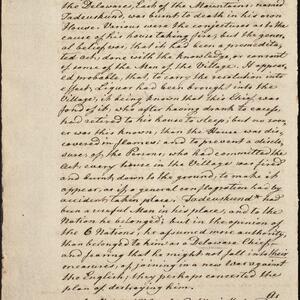 the Delawares, East of the Mountains, named
Tadeuskund, was burnt to death in his own
House. Various were the conjectures as to the
cause of his house taking fire, but the gener-
al belief was, that it had been a premedita-
ted act, done with the knowledge, or consent
of some of the Men of the Village. It appear-
ed probable, that, to carry the resolution into
effect, Liquor had been brought into the
Village, it being known that this Chief was
fond of it, who after having drank to excess,
had retired to his house to sleep; no soon-
er was this known, than the House was dis-
covered in flames; and to prevent a disclo-
sure, of the Persons, who had committed the
Act, every house in the Village was fired
and burnt down to the ground, to make it
appear, as if a general conflagration had by
accident, taken place. Tadeuskund had
been a useful Man in his place, and to the
Nation he belonged; but in the opinion of
the 6 Nations, he assumed more authority,
than belonged to him as a Delaware Chief—
and fearing that he might not fall into their
measures, of joining in a new war against
the English, they perhaps concerted the
plan of destroying him.
As